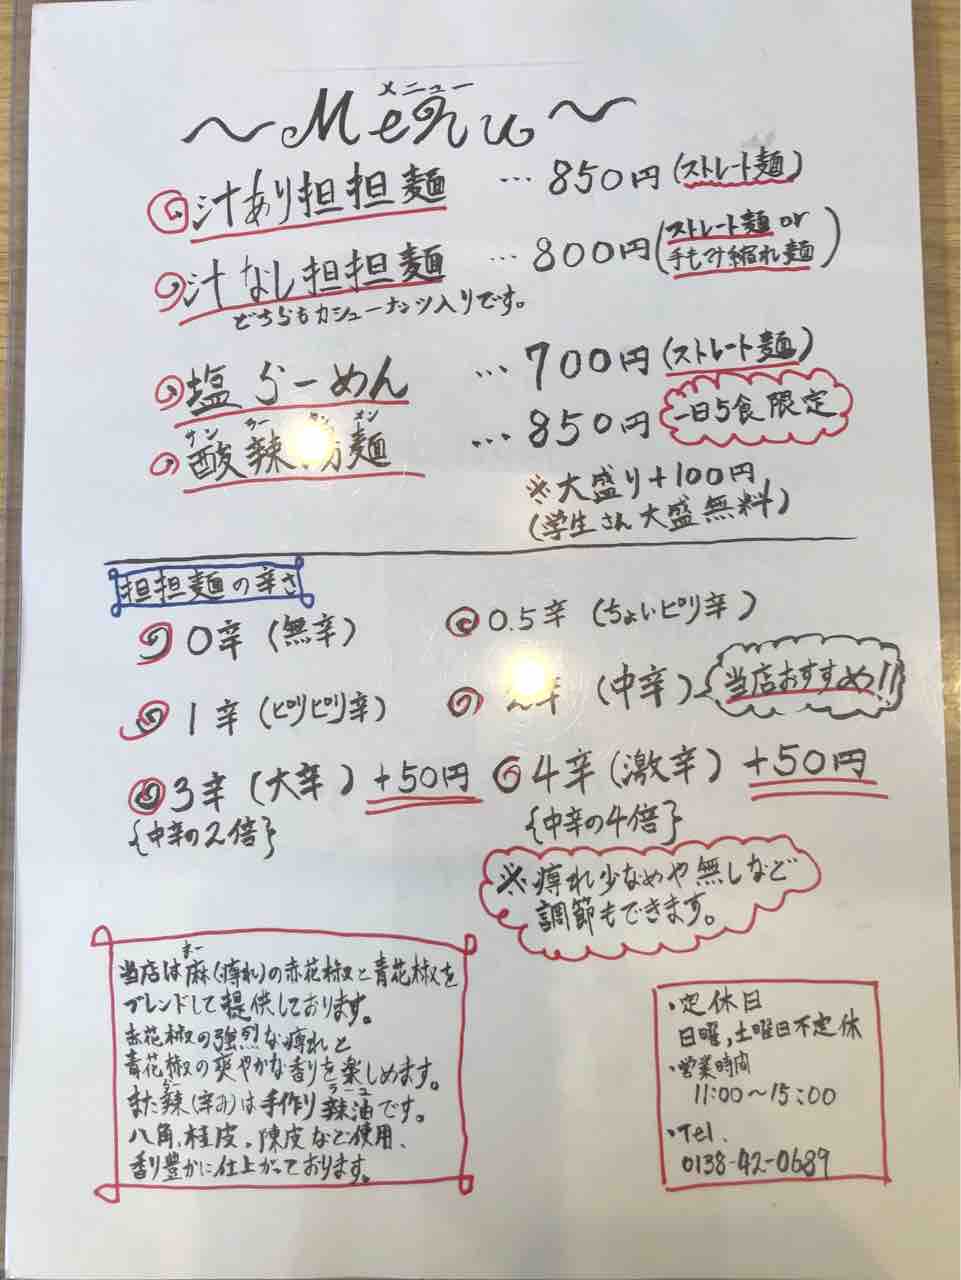 メニュー
～Menu～
汁あり担担麺 … 850円(ストレート麺)
汁なし担担麺 … 800円(ストレート麺 or 手もみ縮れ麺)
どちらもカシューナッツ入りです。
塩らーめん … 700円(ストレート麺)
サン ラー タン メン
酸辣湯麺 … 850円 一日5食限定
※大盛り+100円
(学生さん大盛無料)
担担麺の辛さ
0辛(無辛) 0.5辛(ちょいピリ辛)
1辛(ピリピリ辛) 2辛(中辛) 当店おすすめ!!
3辛(大辛)+50円 4辛(激辛)+50円
{中辛の2倍} {中辛の4倍}
※痺れ少なめや無しなど
調節もできます。
まー
当店は麻(痺れ)の赤花椒と青花椒を
ブレンドして提供しております。
赤花椒の強烈な痺れと
青花椒の爽やかな香りを楽しめます。
ラー ラーユ
また辣(辛み)は手作り辣油です。
八角、桂皮、陳皮など使用、
香り豊かに仕上がっております。
・定休日
日曜,土曜日不定休
・営業時間
11:00～15:00
・Tel.
0138-42-0689